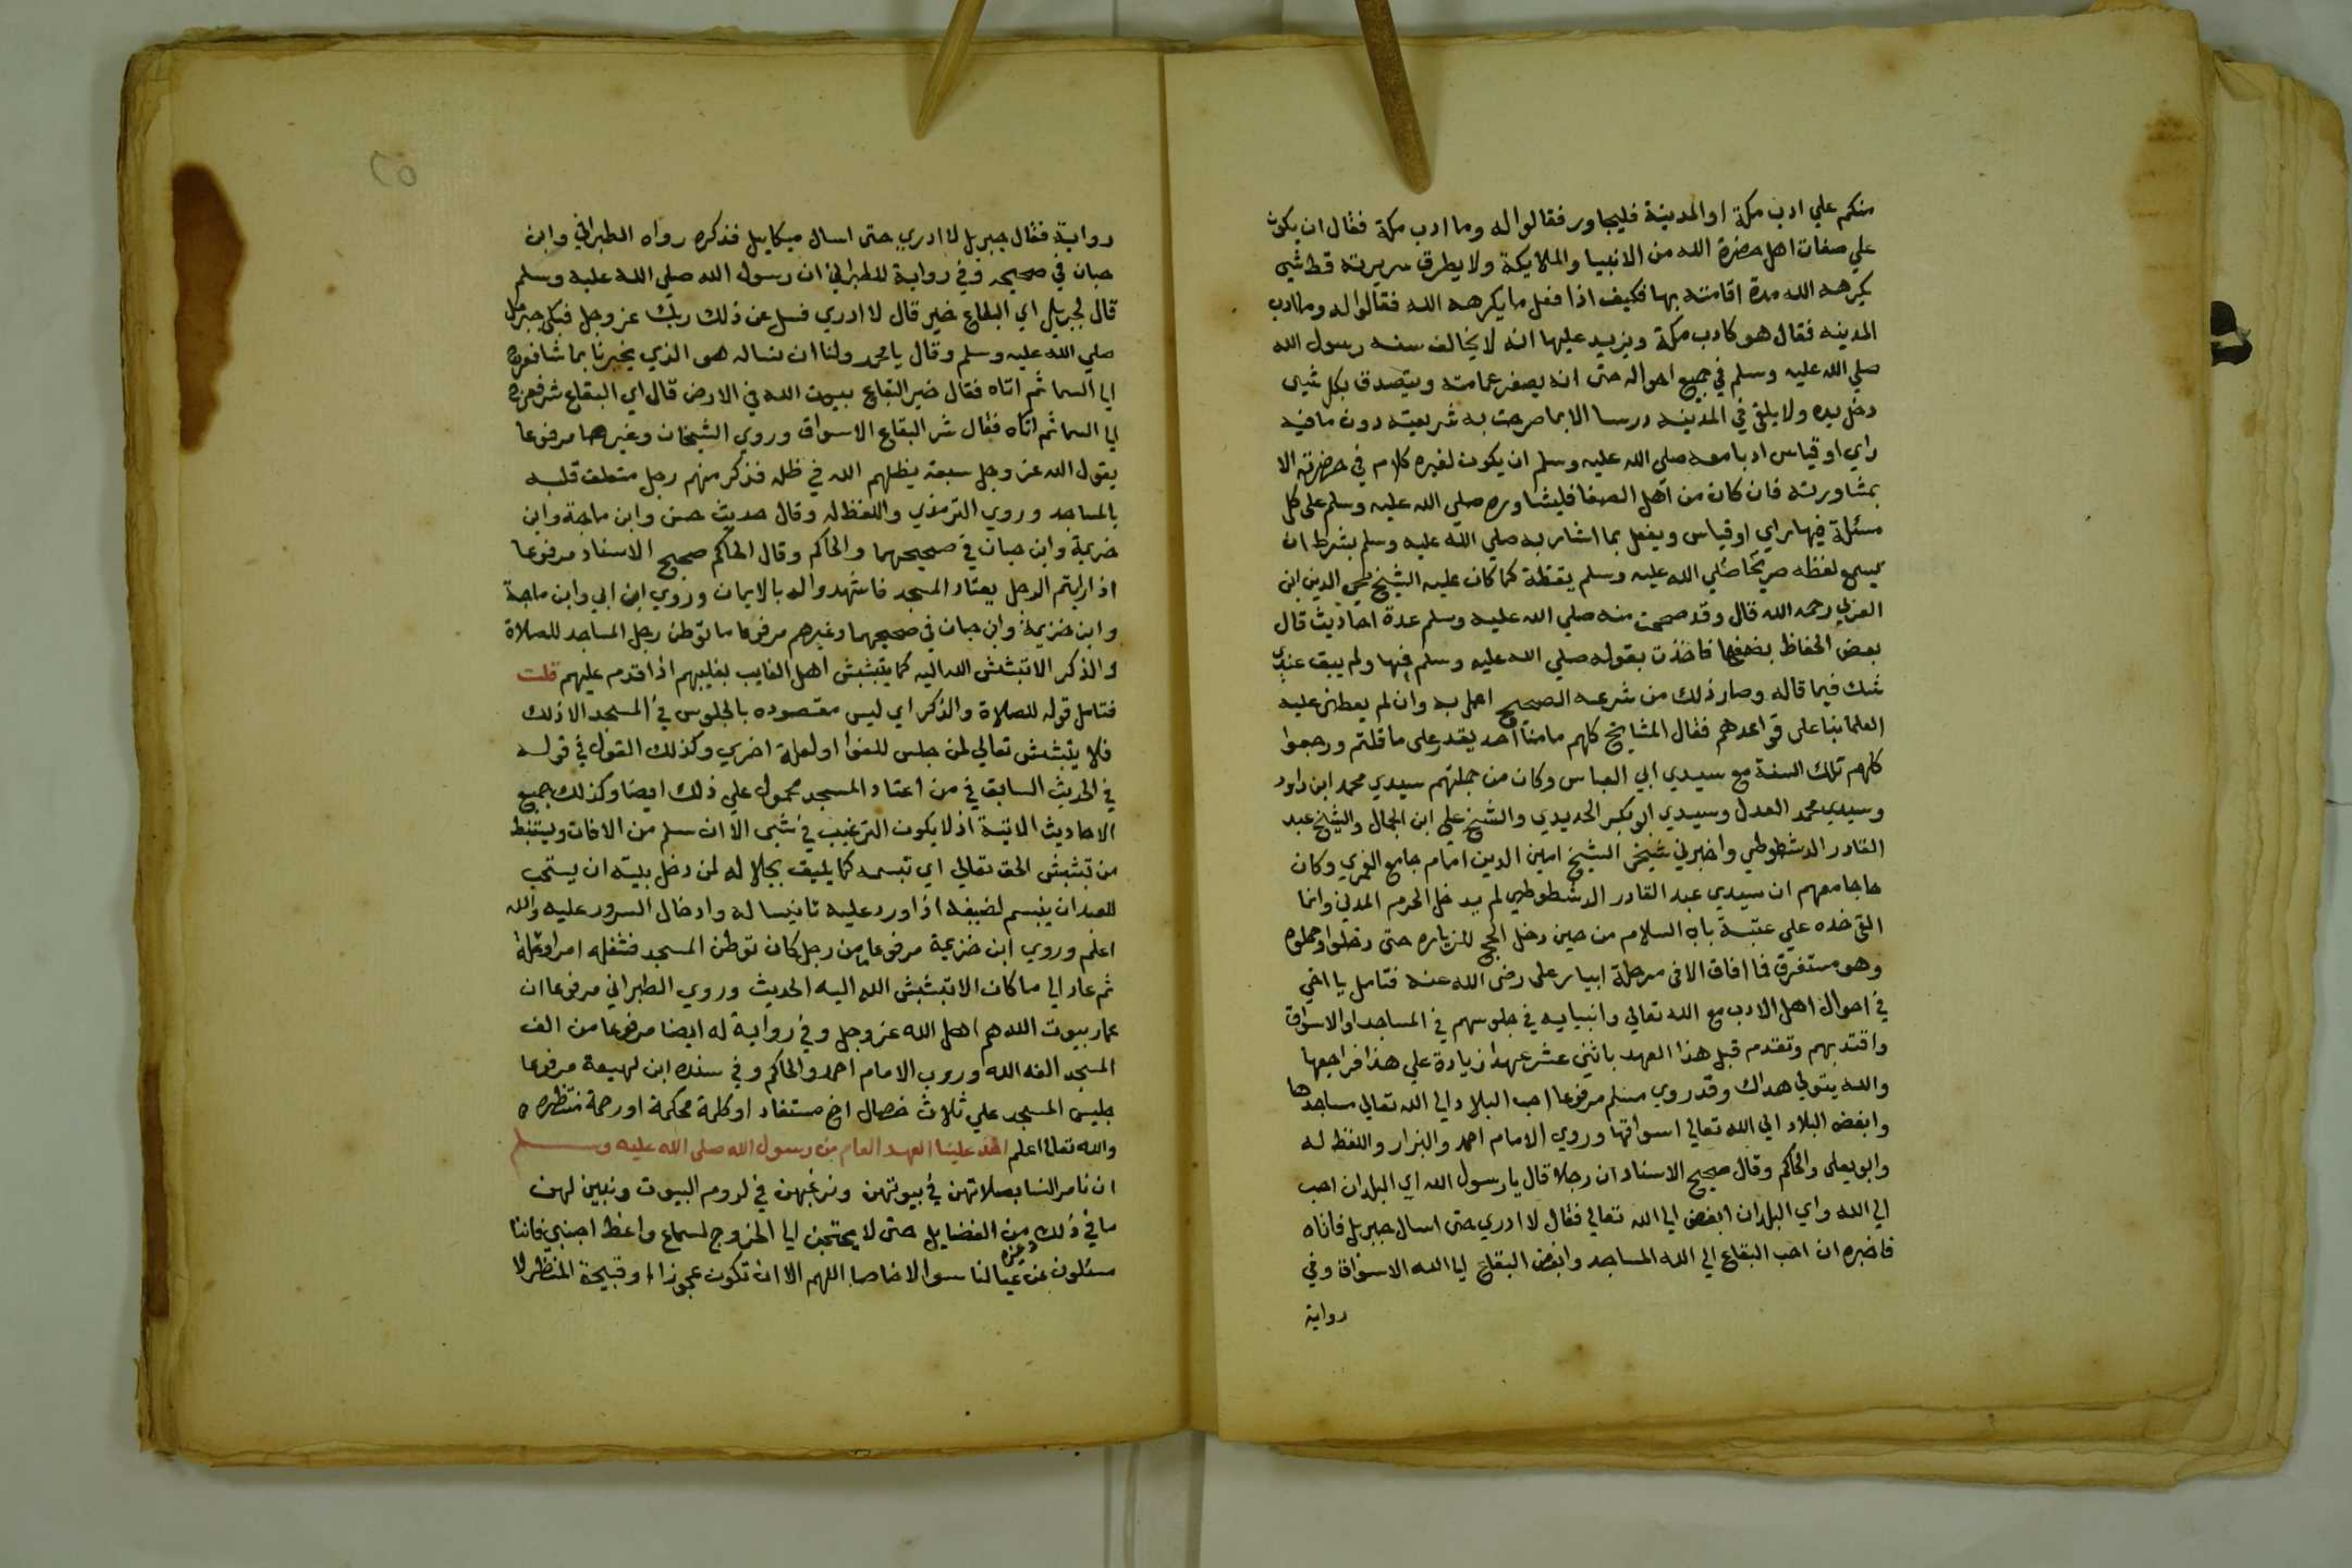 منكم علي ادب مكة او المدينة فليجاور فقالوا له وما ادب مكة فقال ان يكون
علي صفات اهل حضرة الله من الانبيا والملايكة ولا يطرق سريرته قط شي
يكرهه الله مدة اقامته بها فكيف اذا فعل ما يكرهه الله فقالوا له وما ادب
المدينه فقال هو كادب مكة ويزيد عليها انه لا يخالف سنه رسول الله
صلي الله عليه وسلم في جميع احواله حتى انه يصغر عمامته ويتصدق بكل شي
دخل يده ولا يلقي في المدينه درسا الا بما صرحت به شريعته دون ما فيه
راي او قياس ادبا معه صلي الله عليه وسلم ان يكون لغيره كلام في حضرته الا
بمشاورته فان كان من اهل الصفا فليشاوره صلي الله عليه وسلم على كل
مسئلة فيها راي او قياس ويفعل بما اشار به صلي الله عليه وسلم بشرط ان
يسمع لفظه صريحا صلي الله عليه وسلم يقظة كما كان عليه الشيخ محي الدين ابن
العربي رحمه الله قال وقد صححت منه صلي الله عليه وسلم عدة احاديث قال
بعض الحفاظ بضعفها فاخذت بقوله صلي الله عليه وسلم فيها ولم يبق عندي
شك فيما قاله وصار ذلك من شرعه الصحيح اعمل به وان لم يطعني عليه
العلما بنا على قواعدهم فقال المشايخ كلهم ما منا احد يقدر على ما قلتم ورجعوا
كلهم تلك السنة مع سيدي ابي العباس وكان من جملتهم سيدي محمد ابن داود
وسيدي محمد العدل وسيدي ابو بكر الحديدي والشيخ علي ابن الجمال والشيخ عبد
القادر الدشطوطي واخبرني شيخي الشيخ امين الدين امام جامع الغمري وكان
حاجا معهم ان سيدي عبد القادر الدشطوطي لم يدخل الحرم المدني وانما
القى خده علي عتبة باب السلام من حين دخل الحج للزياره حتى رحلوا وحملوه
وهو مستغرق فما افاق الا في مرحلة ابيار على رضي الله عنه فتامل يا اخي
في احوال اهل الادب مع الله تعالي وانبيايه في جلوسهم في المساجد او الاسواق
واقتد بهم وتقدم قبل هذا العهد باثني عشر عهدا زيادة علي هذا فراجعها
والله يتولي هداك وقد روي مسلم مرفوعا احب البلاد الي الله تعالي مساجدها
وابغض البلاد الي الله تعالي اسواقها وروي الامام احمد والبزار واللفظ له
وابو يعلى والحاكم وقال صحيح الاسناد ان رجلا قال يا رسول الله اي البلدان احب
الي الله واي البلدان ابغض الي الله تعالي فقال لا ادري حتى اسال جبريل فاتاه
فاخبره ان احب البقاع الي الله المساجد وابغض البقاع الي الله الاسواق وفي
رواية
٢٥
رواية فقال جبريل لا ادري حتى اسال ميكاييل فذكره رواه الطبراني وابن
حبان في صحيحه وفي رواية للطبراني ان رسول الله صلي الله عليه وسلم
قال لجبريل اي البقاع خير قال لا ادري فسل عن ذلك ربك عز وجل فبكى جبريل
صلي الله عليه وسلم وقال يا محمد ولنا ان نساله هو الذي يخبرنا بما شا فعرج
الي السما ثم اتاه فقال خير البقاع بيوت الله في الارض قال اي البقاع شر فعرج
الي السما ثم اتاه فقال شر البقاع الاسواق وروي الشيخان وغيرهما مرفوعا
يقول الله عز وجل سبعة يظلهم الله في ظله فذكر منهم رجل متعلق قلبه
بالمساجد وروي الترمذي واللفظ له وقال حديث حسن وابن ماجة وابن
خزيمة وابن حبان في صحيحهما والحاكم وقال الحاكم صحيح الاسناد مرفوعا
اذا رايتم الرجل يعتاد المسجد فاشهدوا له بالايمان وروي ابن ابي وابن ماجة
وابن خزيمة وابن حبان في صحيحهما وغيرهم مرفوعا ما توطن رجل المساجد للصلاة
والذكر الا تبشبش الله اليه كما يتبشبش اهل الغايب بغايبهم اذا قدم عليهم قلت
فتامل قوله للصلاة والذكر اي ليس مقصوده بالجلوس في المسجد الا ذلك
فلا يتبشبش تعالي لمن جلس للغوا او لعلة اخري وكذلك القول في قوله
في الحديث السابق في من اعتاد المسجد محمول علي ذلك ايضا وكذلك جميع
الاحاديث الاتية اذ لا يكون الترغيب في شي الا ان سلم من الافات ويستنبط
من تبشبش الحق تعالي اي تبسمه كما يليق بجلاله لمن دخل بيته ان يستحب
للعبد ان يتبسم لضيفه اذا ورد عليه تانيسا له وادخال السرور عليه والله
اعلم وروي ابن خزيمة مرفوعا من رجل كان توطن المسجد فشغله امر او علة
ثم عاد الي ما كان الا تبشبش الله اليه الحديث وروي الطبراني مرفوعا ان
عمار بيوت الله هم اهل الله عز وجل وفي رواية له ايضا مرفوعا من الف
المسجد الفه الله وروي الامام احمد والحاكم وفي سنده ابن لهيعة مرفوعا
جليس المسجد علي ثلاث خصال اخ مستفاد او كلمة محكمة او رحمة منتظره
والله تعالي اعلم اخذ علينا العهد العام من رسول الله صلى الله عليه وسلم
ان نامر النسا بصلاتهن في بيوتهن ونرغبهن في لزوم البيوت ونبين لهن
ما في ذلك من الفضايل حتى لا يحتجن الي الخروج لسماع واعظ اجنبي فاننا
مسئلون عن عيالنا سوالا خاصا اللهم الا ان تكون عجوزا او قبيحة المنظر لا